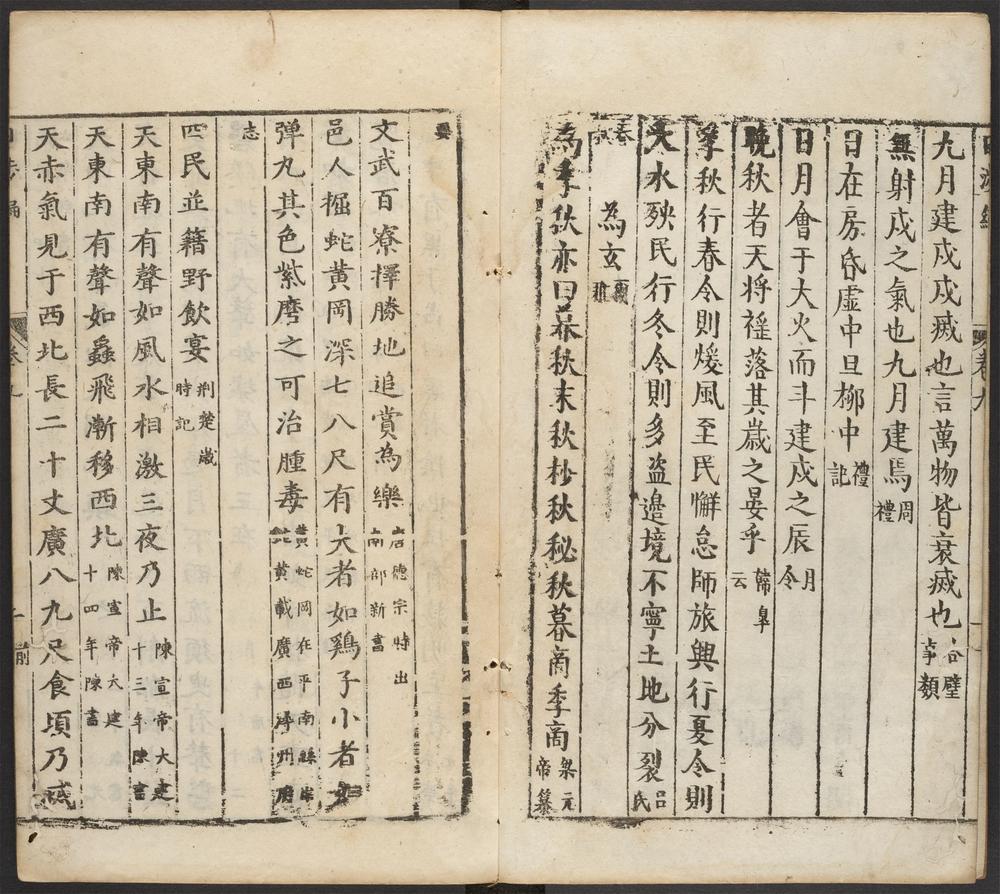 卷九
九月建戌戌滅也言萬物皆衰滅也合璧事類
無射戌之氣也九月建焉周禮
日在房昏虛中旦柳中禮記
日月會于大火而斗建戌之辰月令
晚秋者天将揺落其歳之晏乎韓臯云
季秋行春令則煖風至民懈怠師旅興行夏令則
大水殃民行冬令則多盗邉境不寧土地分裂呂氏
春秋
為玄爾雅
為季秋亦曰暮秋末秋杪秋秘秋暮商季商梁元帝纂
要
文武百寮擇勝地追賞為樂唐德宗時出南部新書
邑人掘蛇黄岡深七八尺有大者如鷄子小者如
弾丸其色紫磨之可治腫毒黄蛇岡在平南縣出蛇黄載廣西潯州府
志
四民並籍野飲宴荆楚歳時記
天東南有聲如風水相激三夜乃止陳宣帝大建十三年陳書
天東南有聲如蟲飛漸移西北陳宣帝大建十四年陳書
天赤氣見于西北長二十丈廣八九尺食頃乃滅